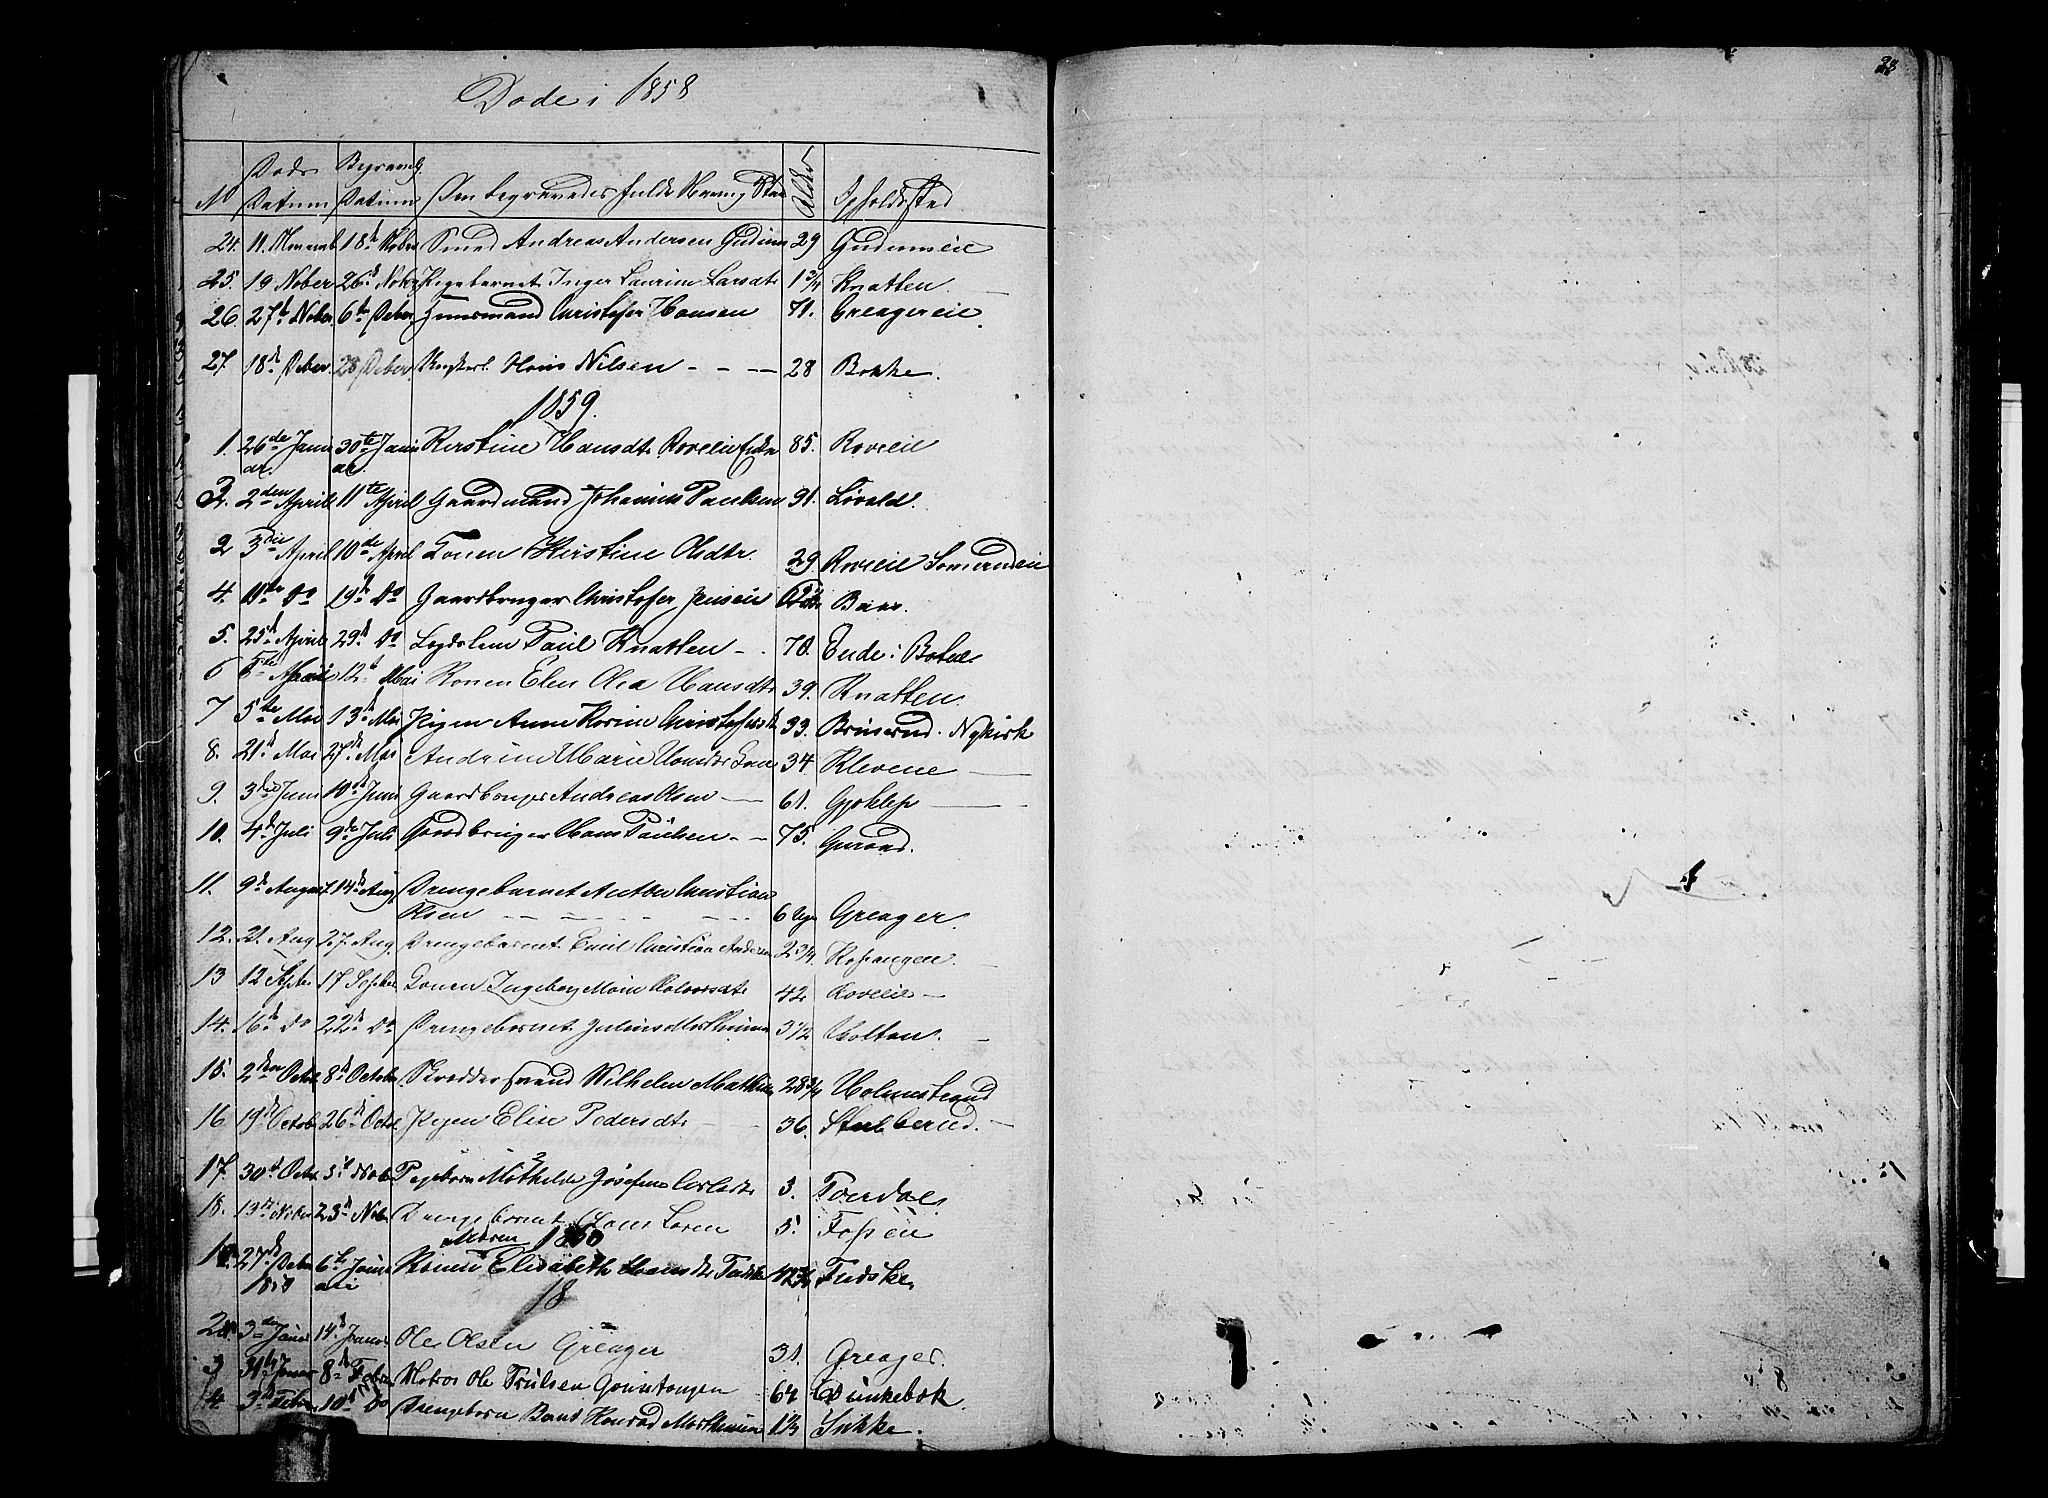 Døde i 1858
No Døds Datum Begravelg. Datum Den begravedes fulde Navn og Stan Alder Opholdssted
24. 11. Novemb. 18d Nober Smed Andreas Andersen Gudum 29 Gudumseie
25. 19 Nober 26d Nober Pigebarnet Inger Laurine Larsdtr 1 3/4 Knatten
26. 27d Nober 6te Deber Huusmand Christofer Hansen 71. Greagereie.
27. 18d Deber. 28 Deber. Ungkarl Hans Nilsen 28 Bakke.
1859.
1. 26de Janu ar. 30te Janu ar. Kirstine Hansdtr Roveeie Enke 85. Roveeie
3. 2den April 11te April Gaardmand Johannes Paulsen 91. Lövald.
2 3die April 10de April Konen Kirstine Olsdtr. 29. Roveeie
4. 11te Do 19de Do Gaardbruger Christofer Jensen Baar.
5. 25d April 29d Do Lægdslem Paul Knatten 70. Ende i
6 5te 12t Mai Konen Elen Olea Hansdtr 39. Knatten.
7 5te Mai 13d Mai Pigen Anne Karine Christofersdtr 33. Nykirk
8. 21d Mai 27de Mai Andrine Marie Hansdtr Kone 34 Klevene
9. 3die Juni 10de Juni Gaardbruger Andreas Olsen 61. Gjøklep
10. 4de Juli 9de Juli Gaardbruger Hans Paulsen 75.
11. 9de August 14de Aug Drengebarnet Anton Christian
Olsen 6 Uger Greager.
12. 21. Aug 27. Aug. Drengebarnet Emil Christian Andersen 2 3/4
13 12 Septbr 17 Septbr Konen Ingeborg Marie Halvorsdtr 42 Roveeie
14. 16de Do 22de Do Drengebarnet Julius Martinusen 3 1/2 Holtan.
15. 2den Octbr 8de October Skrædder Wilhelm 28 3/4 Holmestrand
16 19de Octob 26de Octbr Pigen Elise Pedersdtr 36. Stubberud.
17. 30te Octbr Nob Pigebarn Mathilde Josefine Carlsdtr 3. Toerdal
18. Nober 23d Nob. Drengebarnet Claus Soren 5. Fosseie
Maren 1860
27de Deber 1859 6te Janu ari Konen Elisabeth Hansdtr 42 3/4 Fudske
18
2. 3die Januar 14. Januar Ole Olsen Greager 31. Greager.
3 31te Januar 8de Febr Matros Ole Trulsen 64
4. 3de Febr 10de Do Drengebarn Konrad Martinusen 1 1/2 Sukke.
28